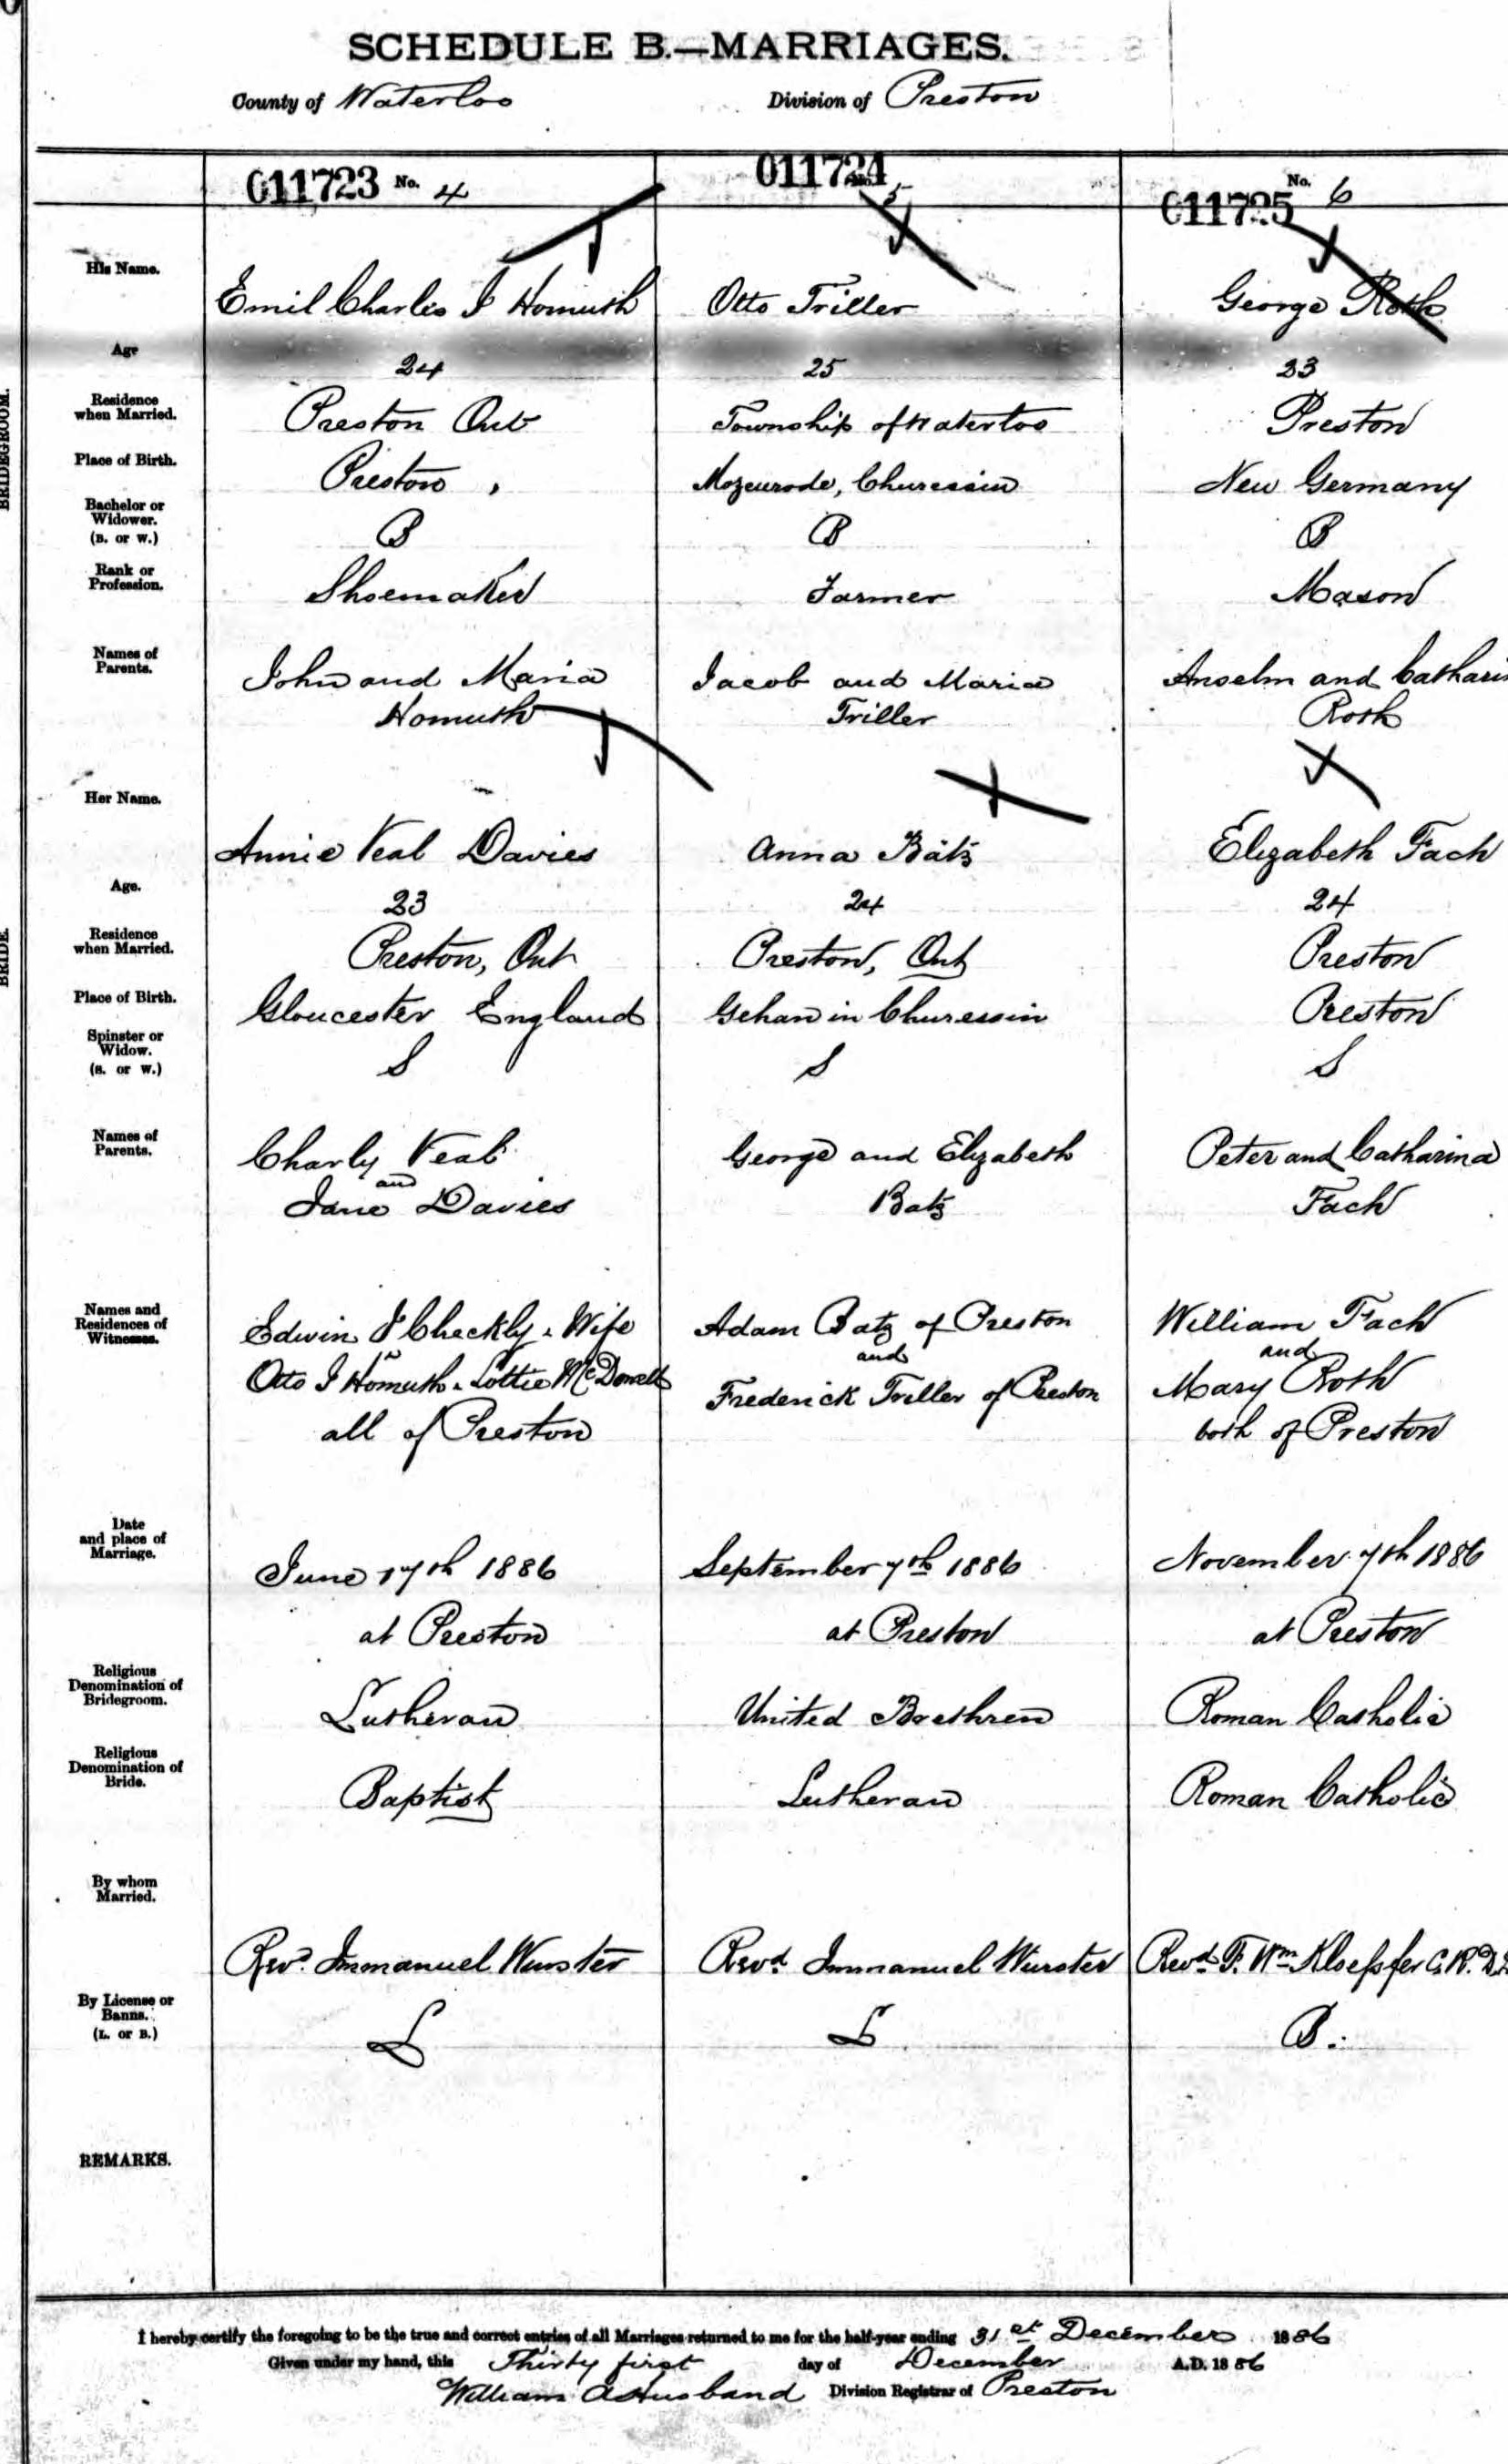 SCHEDULE B.—MARRIAGES.
County of Waterloo Division of Preston
011723 No. 4 011724 No. 5 011725 No. 6
His Name. Emil Charles J Homuth Otto Triller George Roth
BRIDEGROOM.
Age 24 25 23
Residence when Married. Preston Ont Township of Waterloo Preston
Place of Birth. Preston , Churessin New Germany
Bachelor or Widower. (B. or W.) B B B
Rank or Profession. Shoemaker Farmer Mason
Names of Parents. John and Maria Jacob and Maria Anselm and
Homuth Triller Roth
Her Name. Annie Veal Davies Anna Bätz Elizabeth Fach
BRIDE.
Age. 23 24 24
Residence when Married. Preston, Ont Preston, Ont Preston
Place of Birth. Gloucester England Gehan in Churessin Preston
Spinster or Widow. (S. or W.) S S S
Names of Parents. Charly Veal George and Elizabeth Peter and Catharina
and
Jane Davies Batz Fach
Names and Residences of Witnesses. Edwin J Checkly & Wife Adam Batz of Preston William Fach
and and
Otto J Homuth & Lottie McDonell Frederick Triller of Preston Mary Roth
all of Preston both of Preston
Date and place of Marriage. June 17th 1886 September 7th 1886 November 7th 1886
at Preston at Preston at Preston
Religious Denomination of Bridegroom. Lutheran United Brethren Roman Catholic
Religious Denomination of Bride. Baptist Lutheran Roman Catholic
By whom Married. Revd. Immanuel Wurster Revd. Immanuel Wurster Revd. F. Wm Kloepfer C.R.
By License or Banns. (L. or B.) L L B.
REMARKS.
I hereby certify the foregoing to be the true and correct entries of all Marriages returned to me for the half-year ending 31st December 1886
Given under my hand, this Thirty first day of December A.D. 1886
William A Husband Division Registrar of Preston